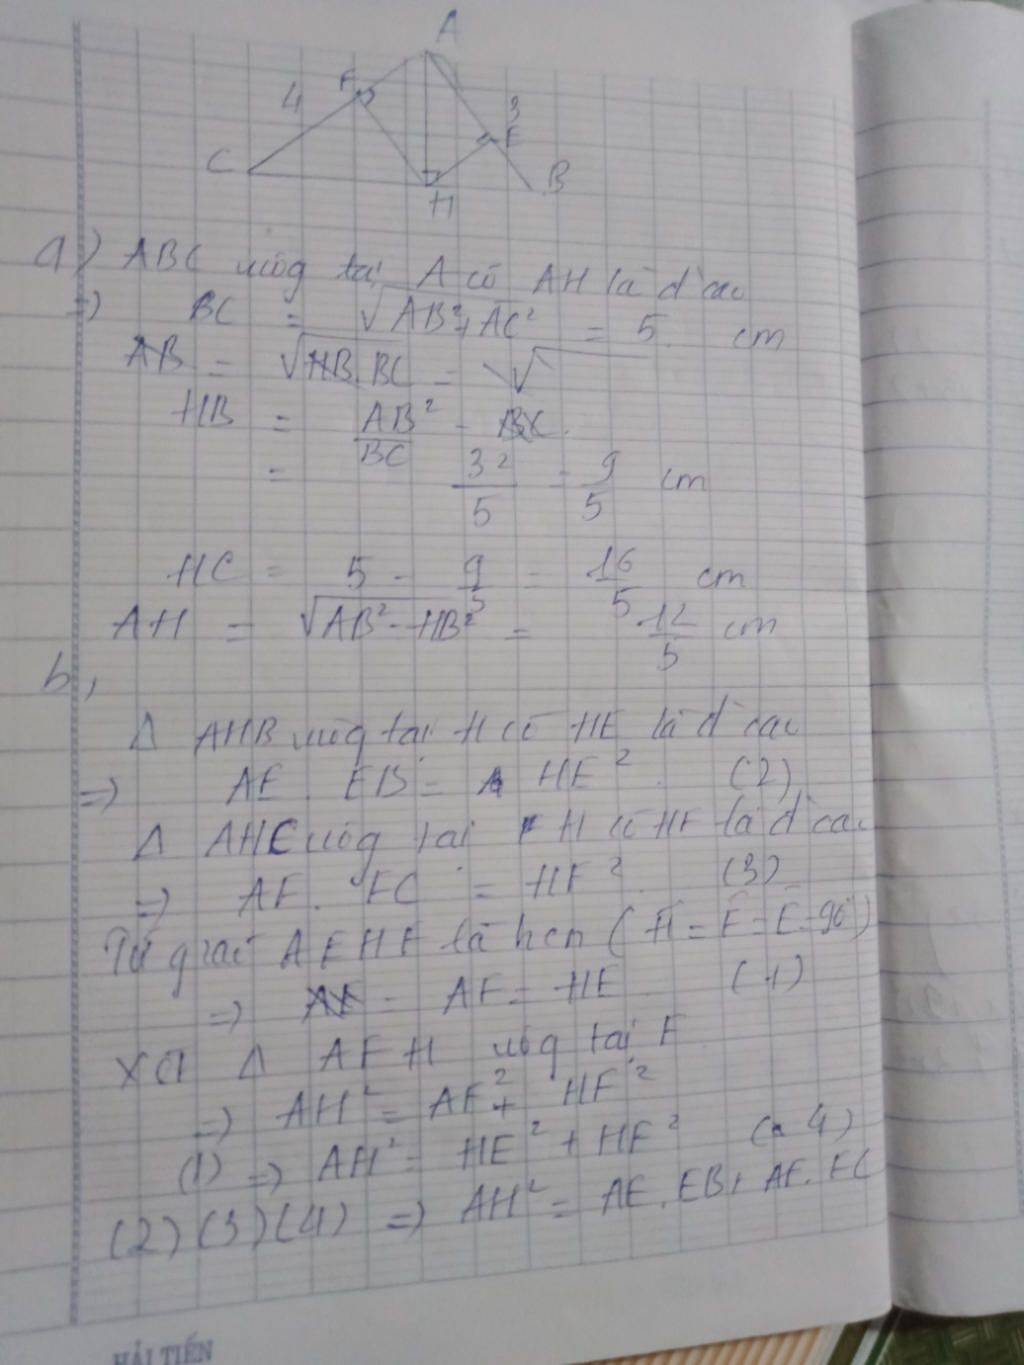 A
F
4
3
E
C
B
H
a) ABC vuông tại A có AH là đ cao
=> BC = √AB²+AC² = 5 cm
AB = √HB.BC = √
HB = AB²/BC
= 3²/5 = 9/5 cm
HC = 5 - 9/5 = 16/5 cm
AH = √AB²-HB² = 12/5 cm
b,
Δ AHB vuông tại H có HE là đ cao
=> AE . EB = HE² (2)
Δ AHC vuông tại H có HF là đ cao
=> AF . FC = HF² (3)
Tứ giác AEHF là hcn (
=> AF = HE (1)
Xét Δ AFH vuông tại F
=> AH² = AF² + HF²
(1) => AH² = HE² + HF² (4)
(2)(3)(4) => AH² = AE.EB+ AF.FC
HẢI TIẾN